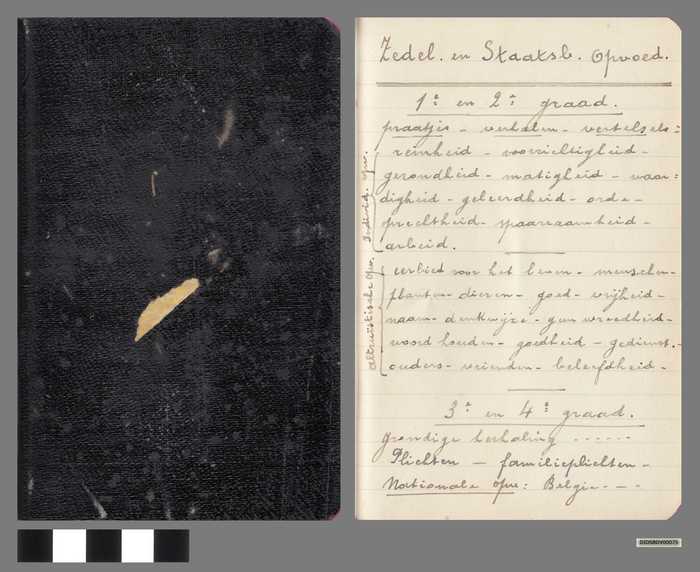 Zedel. en Staatsb. Opvoed.
1e en 2e graad.
praatjes - verhalen - vertelsels:
reinheid - voorzichtigheid -
gezondheid - matigheid - waar=
digheid - geleerdheid - orde -
spaarzaamheid -
arbeid.
Individ. opv.
eerbied voor het leven - menschen -
planten - dieren - goed - vrijheid -
naam - denkwijze - geen wreedheid -
woord houden - goedheid - gedienst. -
ouders - vrienden - beleefdheid -
Altruïstische opv.
3e en 4e graad.
grondige herhaling ......
Plichten - familieplichten -
Nationale opv: België - - -
DIDSBDIV00075